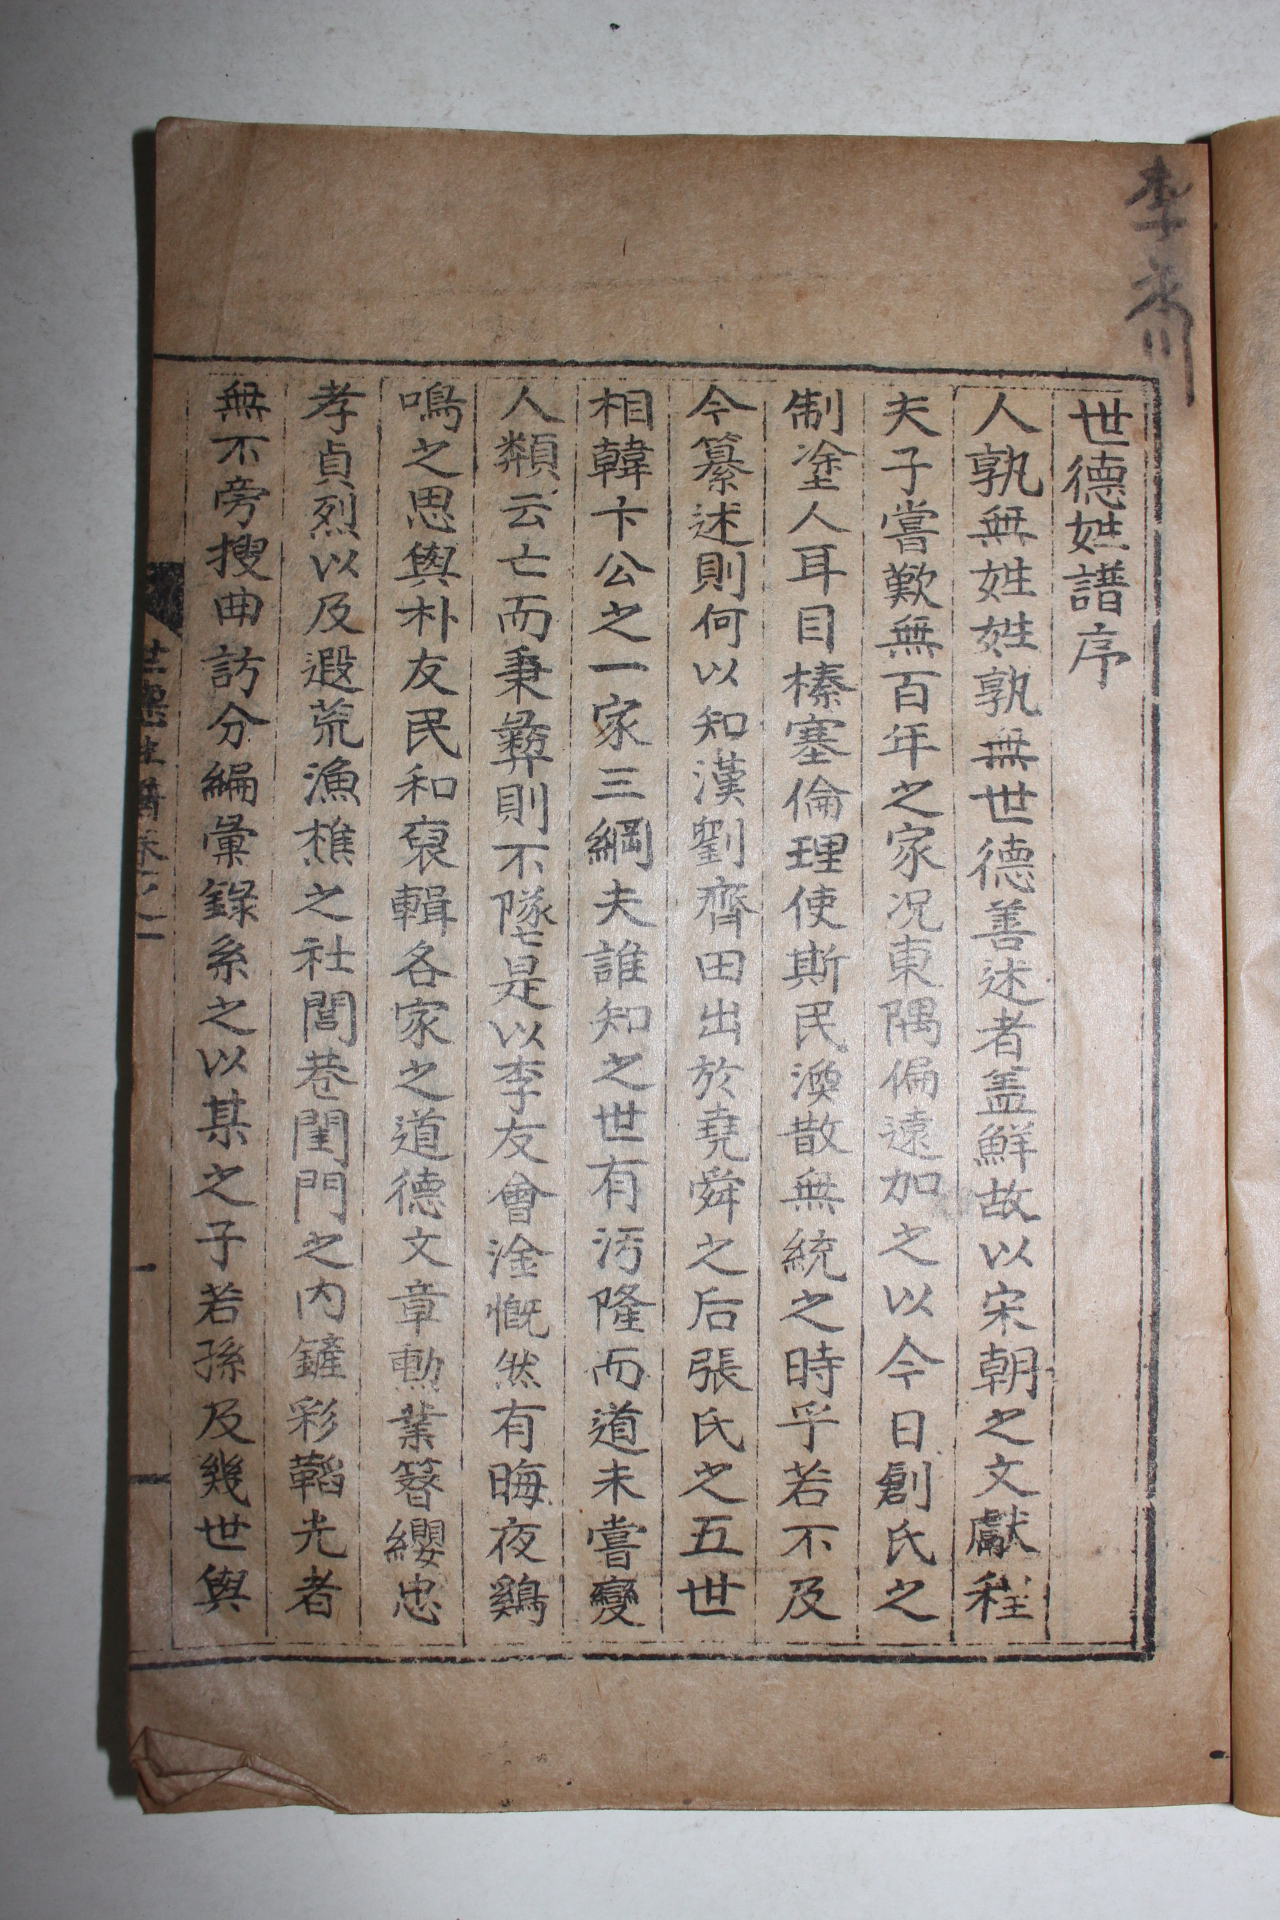 世德姓譜序
人孰無姓姓孰無世德善述者盖鮮故以宋朝之文獻程
夫子嘗歎無百年之家况東隅偏遠加之以今日創氏之
制塗人耳目榛塞倫理使斯民渙散無統之時乎若不及
今纂述則何以知漢劉齊田出於堯舜之后張氏之五世
相韓卞公之一家三綱夫誰知之世有汚隆而道未嘗變
人類云亡而秉彛則不墜是以李友會淦慨然有晦夜鷄
鳴之思與朴友民和裒輯各家之道德文章勳業簪纓忠
孝貞烈以及遐荒漁樵之社閭巷閨門之內鏟彩韜光者
無不旁搜曲訪分編彙錄系之以某之子若孫及幾世與
世德姓譜卷之一